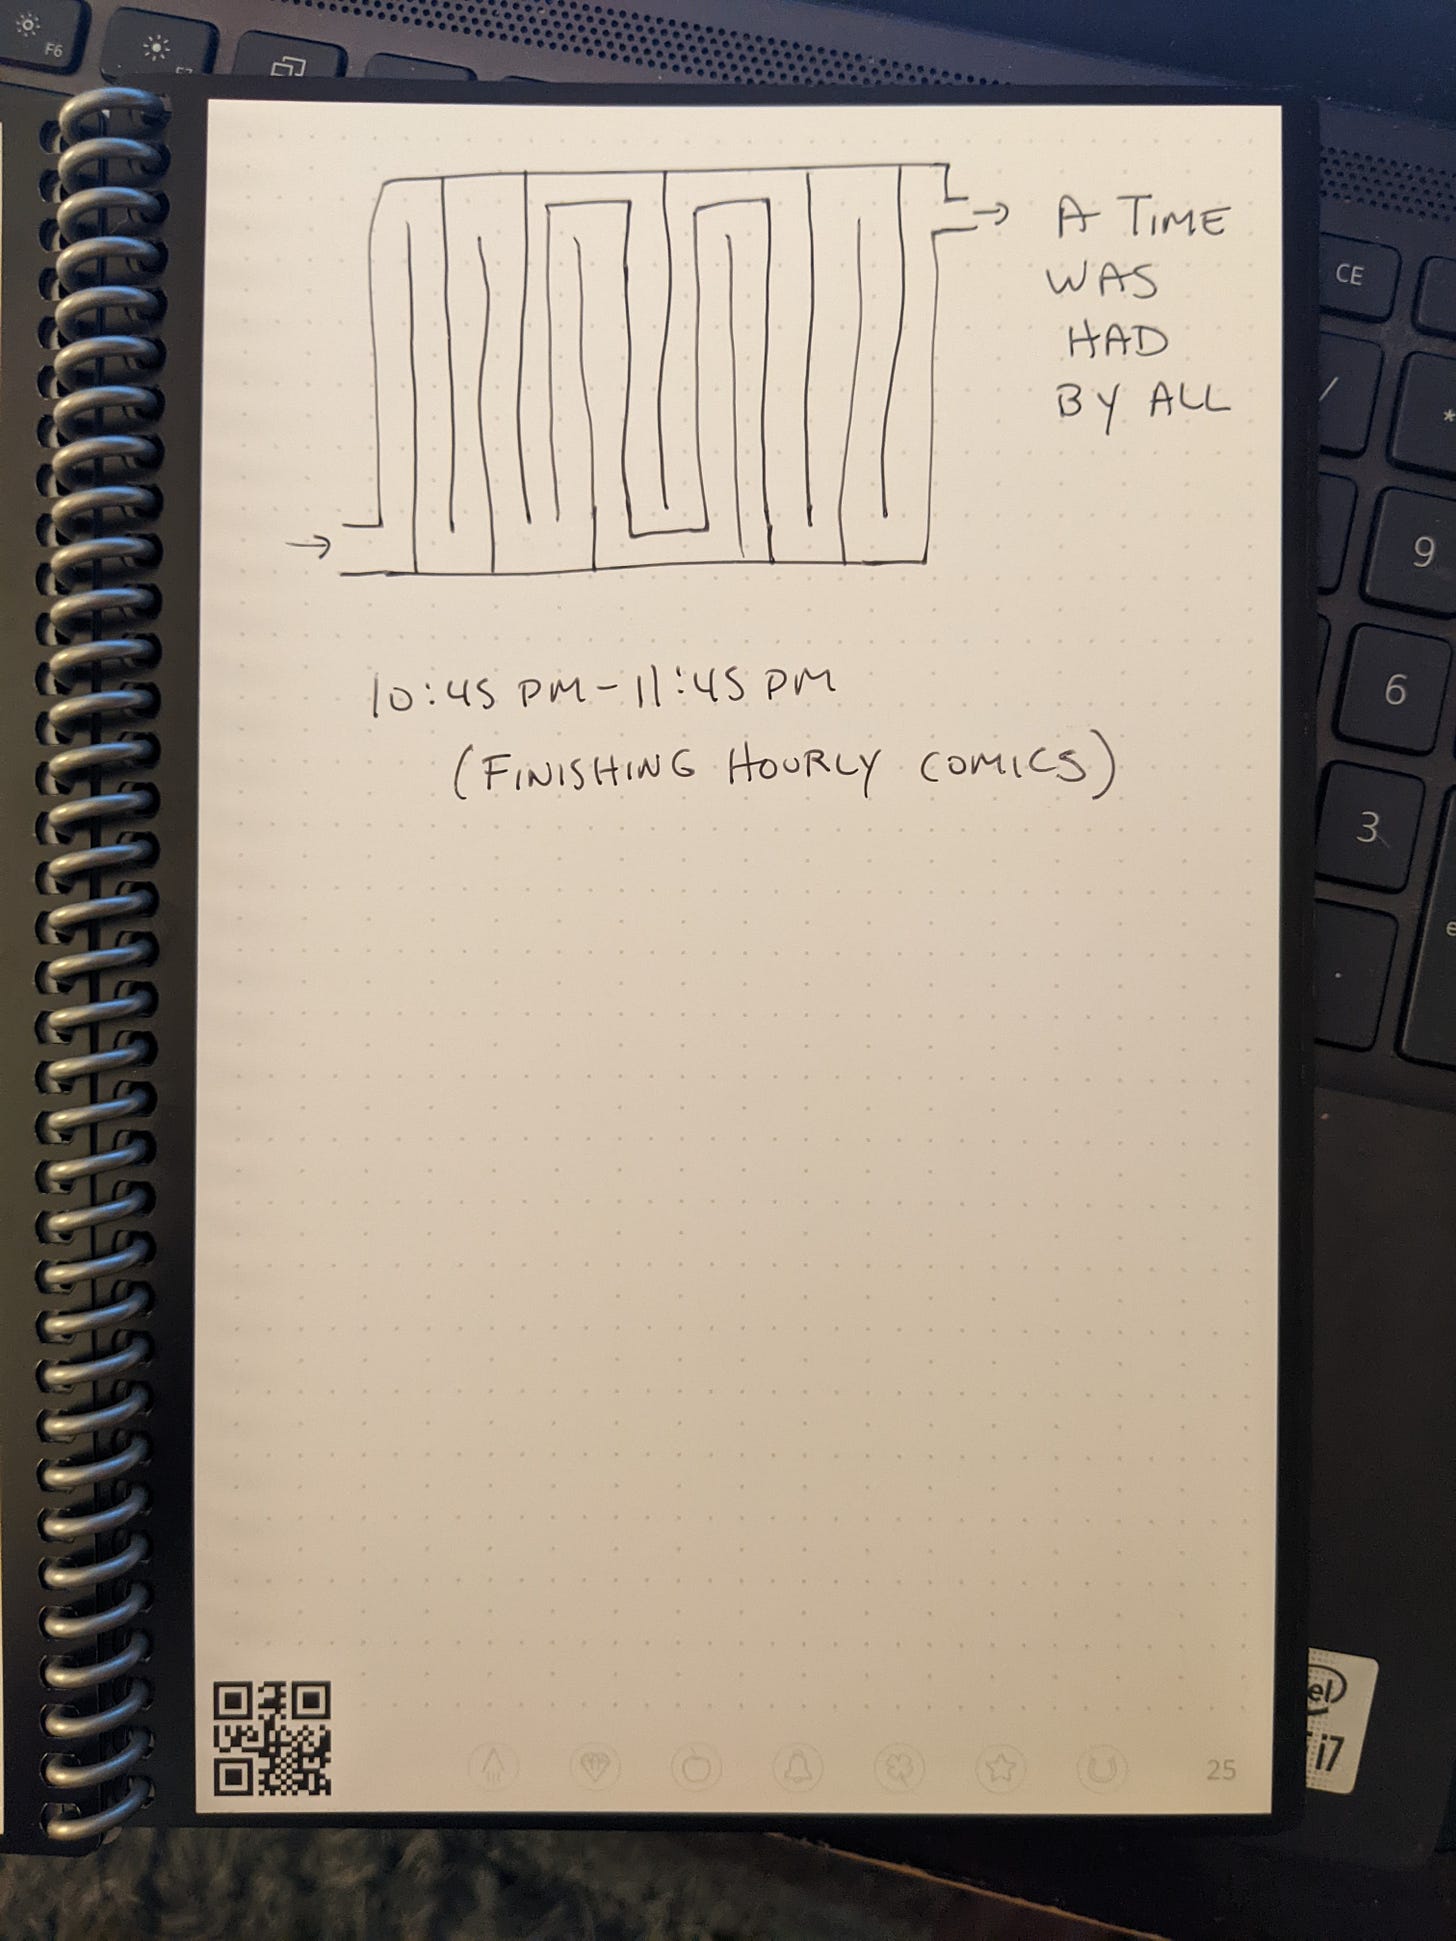 F6
F7
A TIME
WAS
HAD
BY ALL
CE
/
*
9
6
3
.
10:45 PM - 11:45 PM
(FINISHING HOURLY COMICS)
25
i7